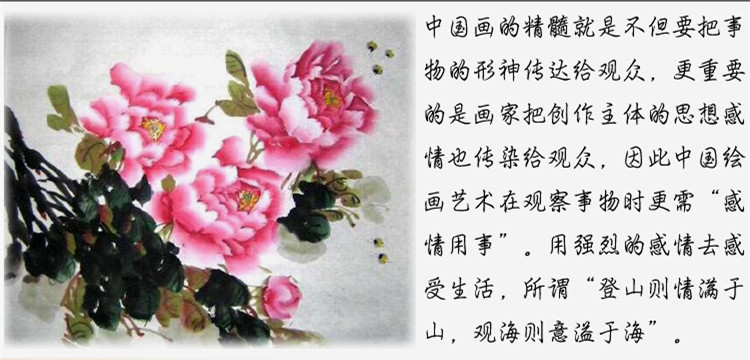 中国画的精髓就是不但要把事
物的形神传达给观众，更重要
的是画家把创作主体的思想感
情也传染给观众，因此中国绘
画艺术在观察事物时更需“感
情用事”。用强烈的感情去感
受生活，所谓“登山则情满于
山，观海则意溢于海”。